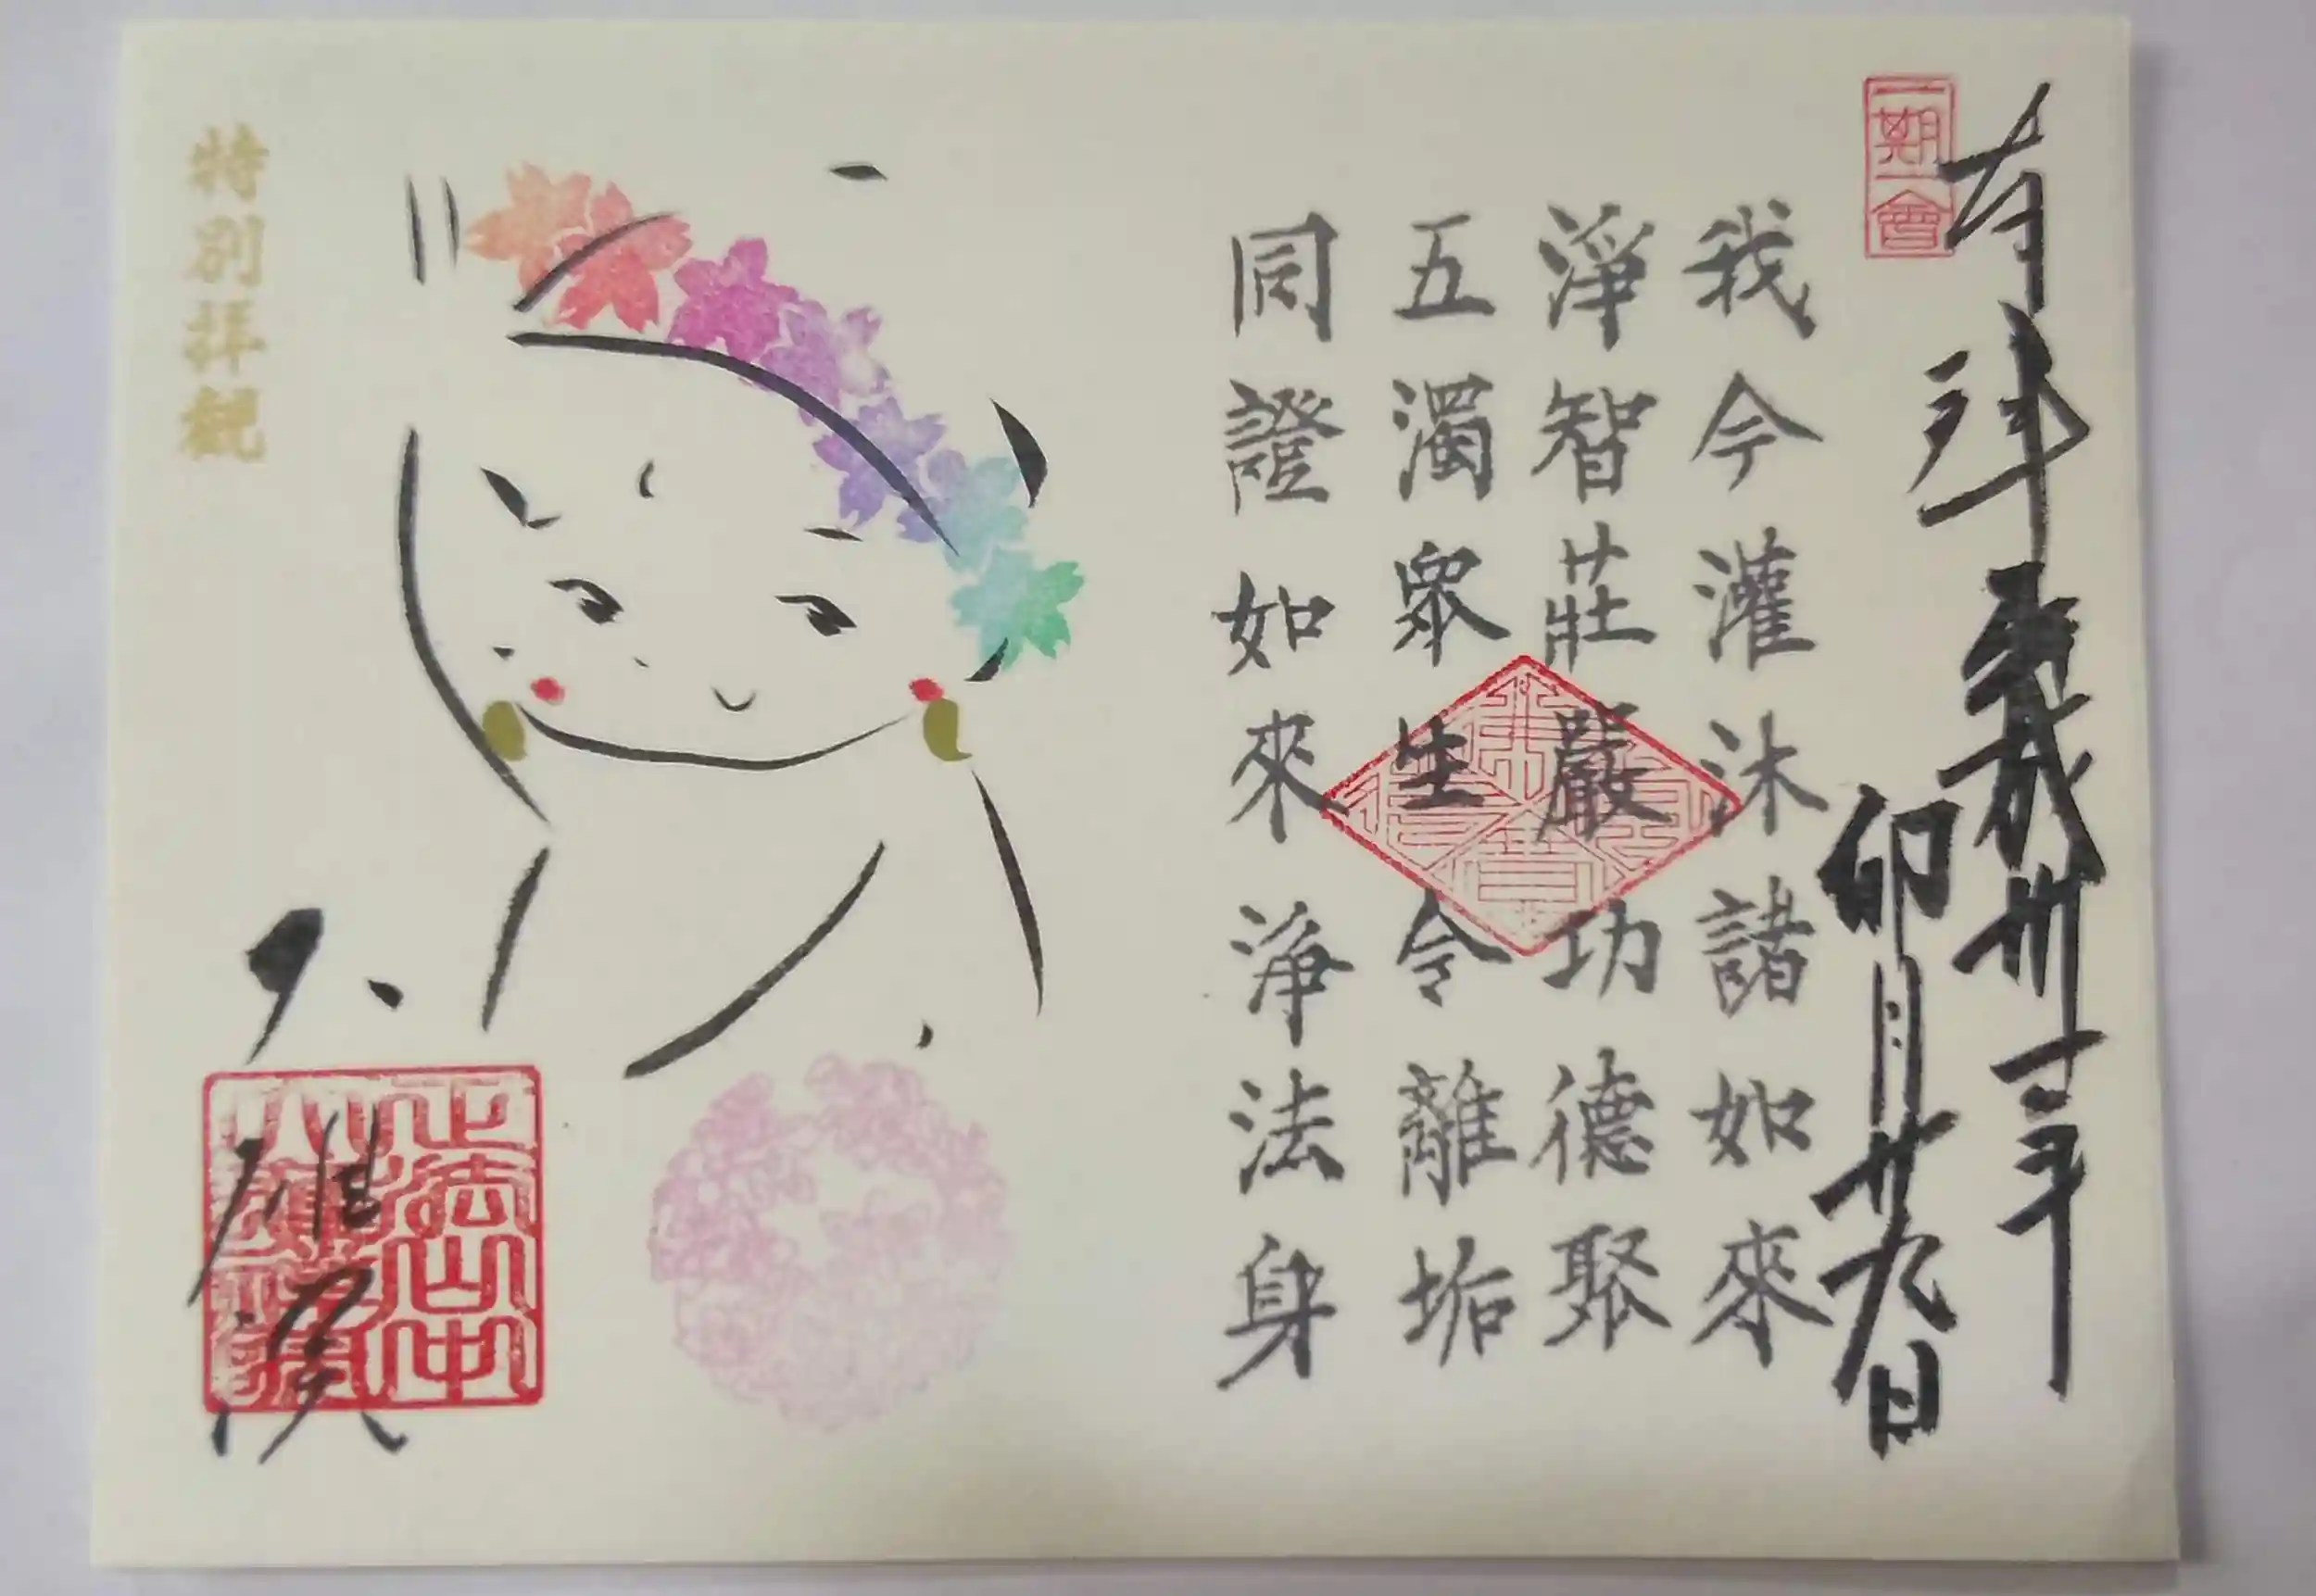 奉拜
平成卅一年
卯月廿九日
一期一會
我今灌沐諸如來
淨智莊嚴功德聚
五濁眾生令離垢
同證如來淨法身
特別拝観
大雄院
正法山中